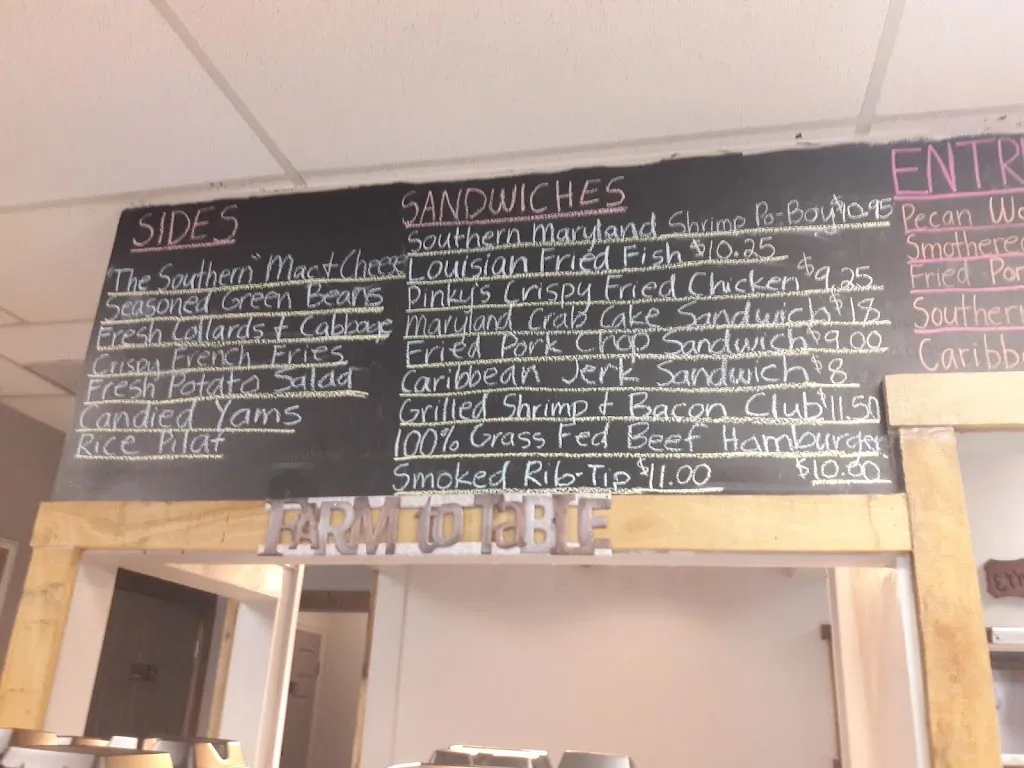 SIDES
"The Southern" Mac & Cheese
Seasoned Green Beans
Fresh Collards & Cabbage
Crispy French Fries
Fresh Potato Salad
Candied Yams
Rice Pilaf
SANDWICHES
Southern Maryland Shrimp Po-Boy $10.95
Louisian Fried Fish $10.25
Pinky's Crispy Fried Chicken $9.25
Maryland Crab Cake Sandwich $13
Fried Pork Chop Sandwich $9.00
Caribbean Jerk Sandwich $8
Grilled Shrimp & Bacon Club $11.50
100% Grass Fed Beef Hamburger
$10.00
Smoked Rib-Tip $11.00
ENTR
Pecan
Smothered
Fried Por
Southern
Caribb
FARM to TaBLE